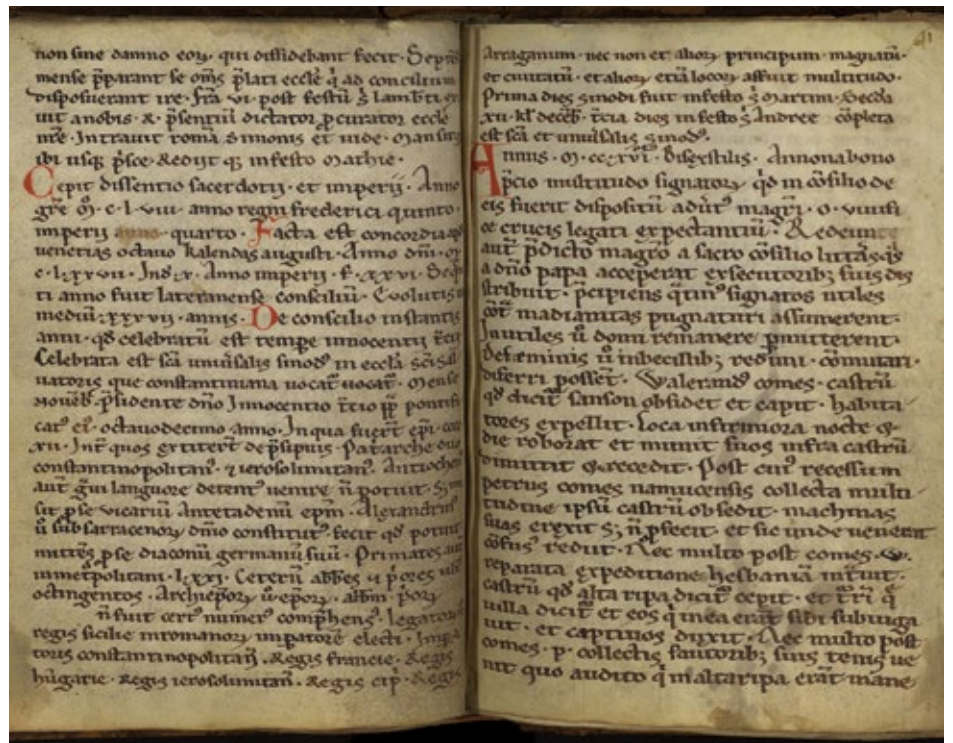 non sine damno eoꝝ. qui dissidebant fecit. Septēb
mense p̄parant se om̄s p̄lati eccl̄e q̇ ad concilium
disposuerant ire. Fr̄a vi post festū s̄ lamb̄ti ex
uit a nobis. & p̄sentiū dictator p̄curator eccl̄e
nr̄e. Intravit romā Simonis et iude. Mansitq
ibi usq; pᷓsce. Redijt q; in festo Mathie.
Cepit dissentio sacerdotij. et imperij. Anno
gr̄e M̊. c. l. viii. anno regni frederici quinto.
imperij quarto. Facta est concordia apᷓ
venetias octavo kalendas augusti. Anno dm̄. M̊.
c. lxxvii. Ind. x. Anno imperij. f. xxvi. Seqᷓ
ti anno fuit lateranense consiliū. Evolutis in
mediū xxxvii. annis. De conscilio instantis
anni. qd celebratū est tempe innocentij tercij
Celebrata est sc̄a univ̄salis sinod' in eccl̄a sc̄i sal
uatoris que constantiniana uocat' uocat'. Mense
Noueb̄. p̄sidente dn̄o Innocentio t̄tio pp̄ pontifi
cat' ei'. octavodecimo anno. In qua fuer̄t ep̄i. cccc
xii. Int̄ quos extiter̄t de p̄sipuis. Pat̄arche duo
constantinopolitan'. & ierosolimitan'. Antiochen'
aut̄ g̊ui languore detent' uenire n̄ potuit. S; mi
sit p̄ se vicariū Antetadenū ep̄m. Alexandrin'
ū sub sarracenoꝝ dn̄io constitut'. fecit qd potuit
mittēs p̄ se diaconū germanū suū. Primates aut̄
in met̊politani. lxxi. Ceterū abb̄es & p̄ores ultᷓ
octingentos. Archiep̄oꝝ ū ep̄oꝝ. abb̄m p̄oꝝ
n̄ fuit cert' numer' comp̄hens'. Legatoꝝ
regis sicilie in romanoꝝ imperatorē electi. Impa
toris constantinopolitan̄. Regis francie. Regis
hūgarie. Regis ierosolimitan̄. Regis cip̄. Regis
arraganum. nec non et alioꝝ principum. magnatū.
et ciuitatū. et alioꝝ etiā locoꝝ affuit multitudo.
Prima dies sinodi fuit in festo s̄ Martini. Secūda
xii. kl̄ deceb̄. t̄cia dies in festo s̄ Andree cōpleta
est sc̄a et univ̄salis sinod'.
Annus. M. ccxvi. Bisextilis. Annona bono
p̄cio multitudo signatoꝝ qd in cōsilio de
eis fuerit dispositū aduēt' magr̄i. O. viuifi
ce crucis legati expectantiū. Redeunte
aut̄ p̄dicto magr̄o a sacro cōsilio litt̄as q̄s
a dn̄o papa acceperat exsecutorib; suis dis
stribuit. p̄cipiens q̄tin' signatos utiles
cōt̄ madianitas pugnaturi assumerent.
Inutiles ū domi remanere p̄mitterent.
De fæminis ū inbecillib; redimi. cōmutari.
differri possēt. Walerand' comes. castrū
qd dicit' Sanson obsidet et capit. habita
tores expellit. Loca infirmiora nocte &
die roborat et munit suos infra castrū
dimittit & recedit. Post cui' recessum
petrus comes namucensis collecta multi
tudine ipsū castrū obsedit. machinas
suas erexit S; n̄ p̄fecit. et sic inde venerat
cōfus' rediit. Nec multo post comes. W.
reparata expeditione hesbaniā int̄uit.
castrū qd alta ripa dicit' cepit. et t̄ri q̄
uilla dicit' et eos q̇ in ea erāt sibi subiuga
uit. et captiuos duxit. Nec multo post
comes. p. collectis fautorib; suis tenis ue
nit quo audito q̇ in alta ripa erāt mane